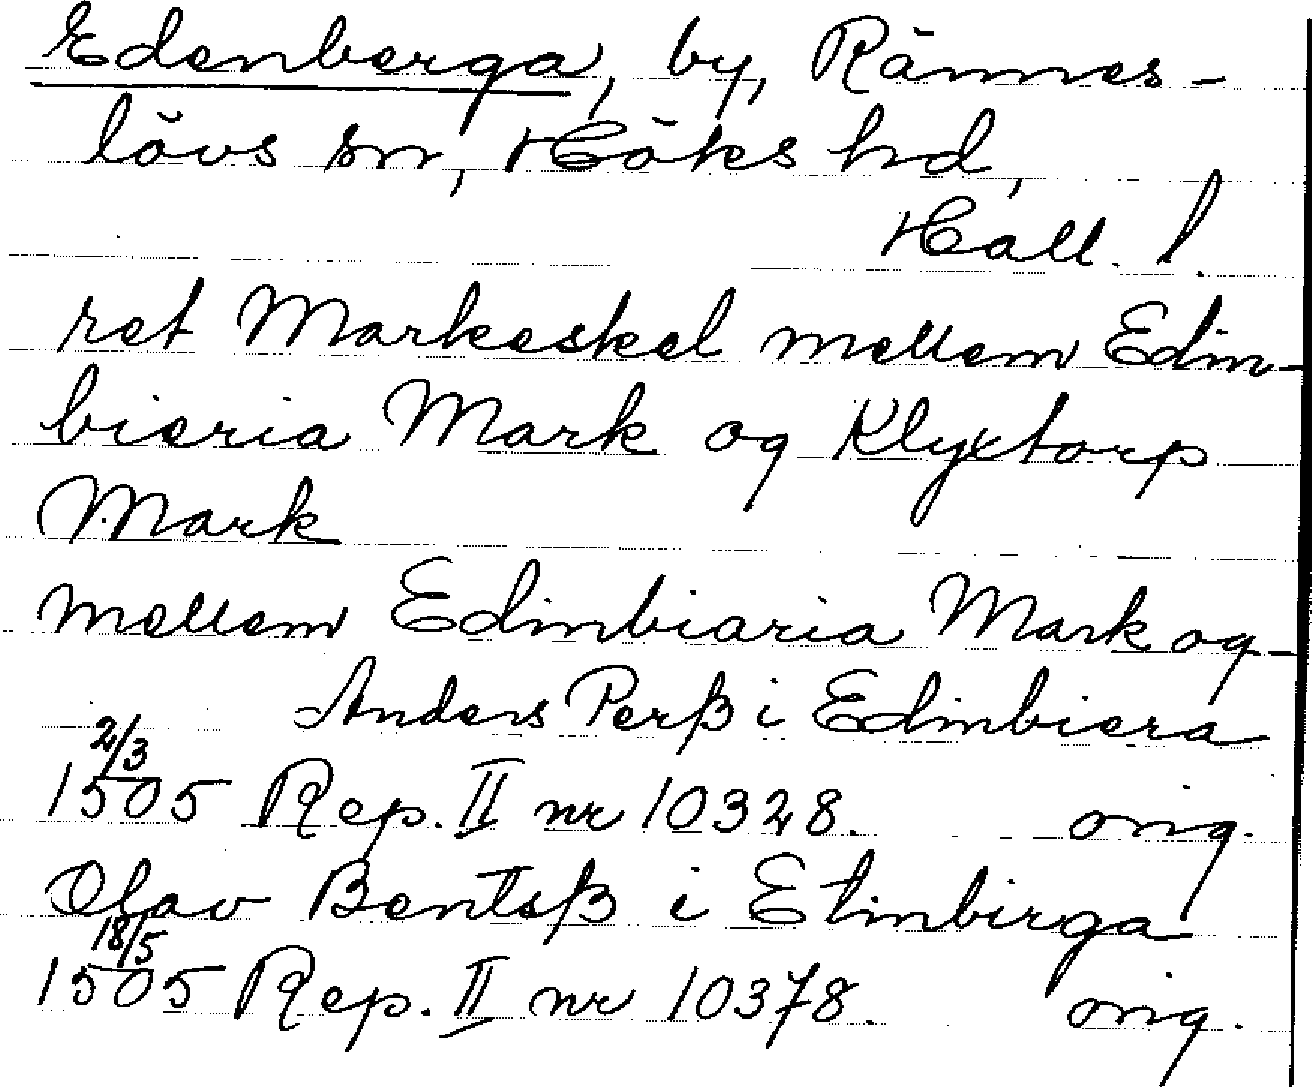 Edenberga, by, Rännes-
lövs sn, Höks hd,
Hall. l.
ret Markeskel mellem Edin-
bieria Mark og Klyxtorp
Mark
mellem Edinbiaria Mark og
Anders Perß i Edinbiera
2/3
1505 Rep. II nr 10328. orig.
Olav Bentsß i Etinbirga
18/5
1505 Rep. II nr 10378. orig.